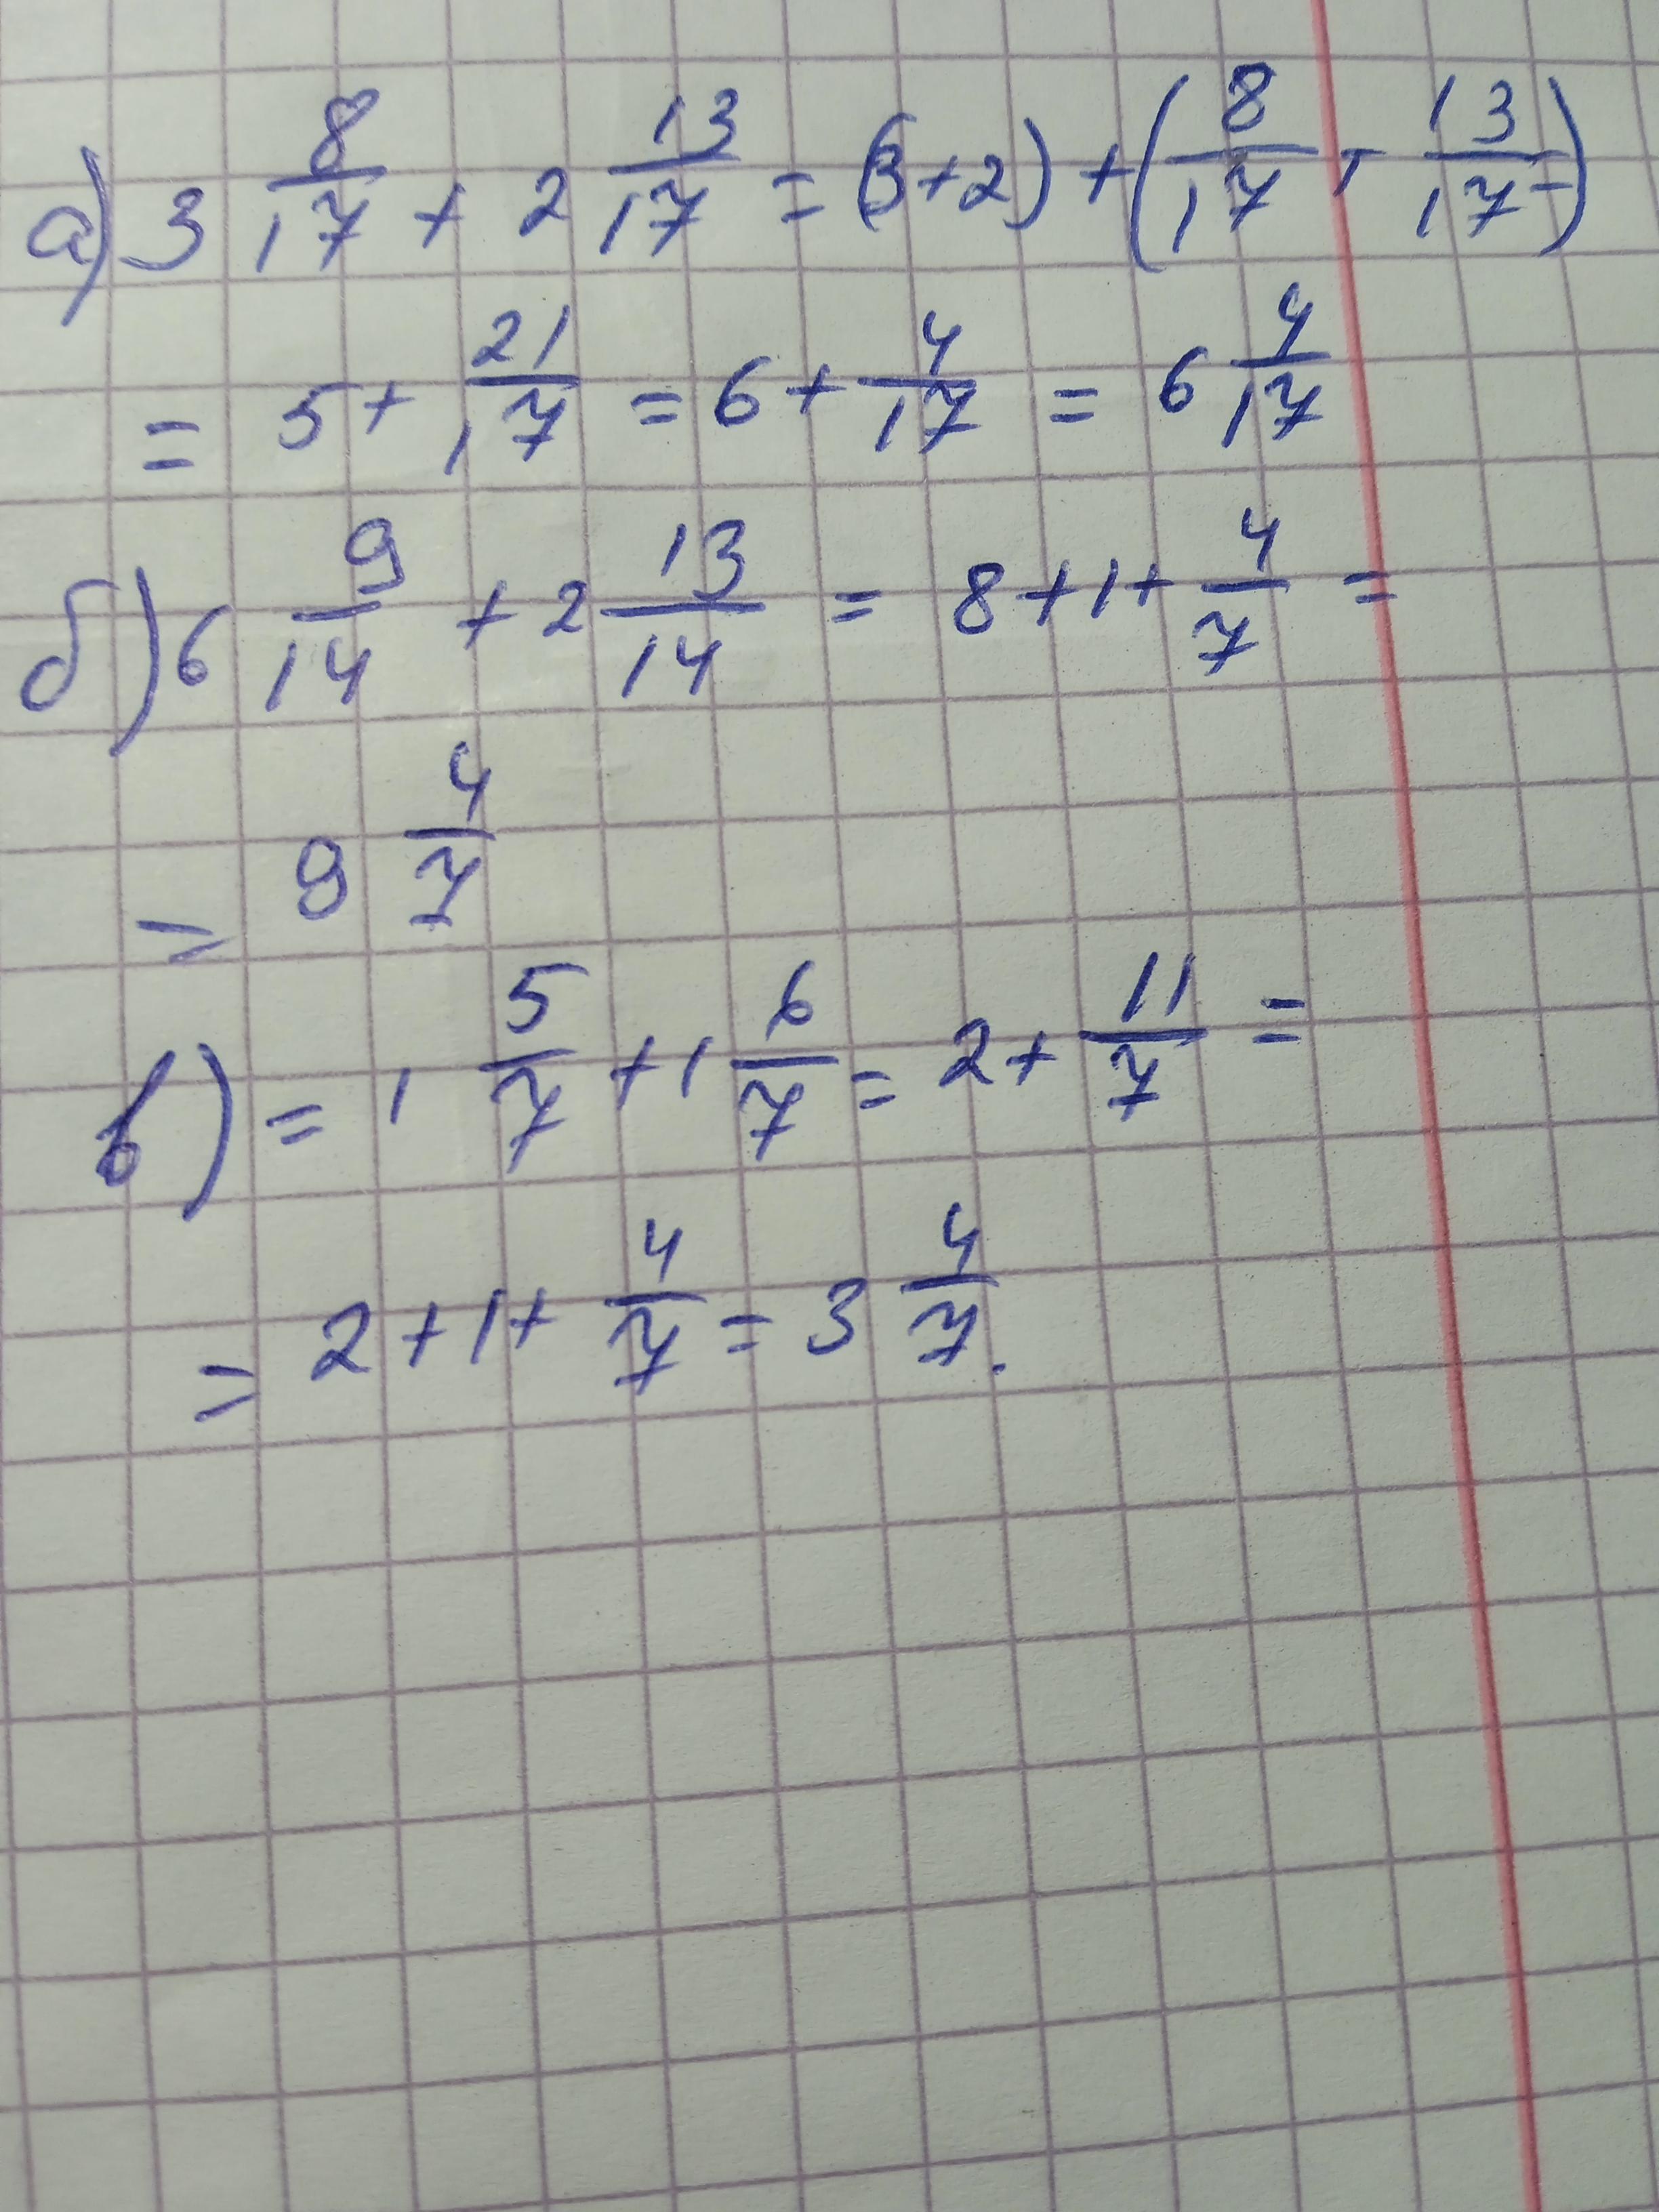 а) 3 8/17 + 2 13/17 = (3+2) + (8/17 + 13/17)
= 5 + 21/17 = 6 + 4/17 = 6 4/17
б) 6 9/14 + 2 13/14 = 8 + 1 + 4/7 =
= 9 4/7
в) = 1 5/7 + 1 6/7 = 2 + 11/7 =
= 2 + 1 + 4/7 = 3 4/7.